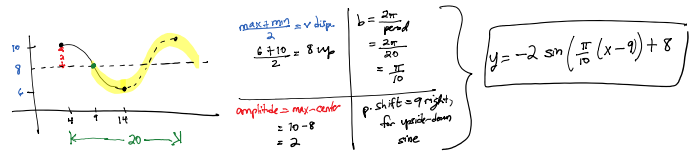 10
8
6
2
4
9
14
20
max+min
2
= v disp.
6+10
2
= 8 up
amplitude = max-center
= 10-8
= 2
b = 2π
period
= 2π
20
= π
10
p. shift = 9 right,
for upside-down
sine
y = -2 sin (π/10 (x-9)) + 8